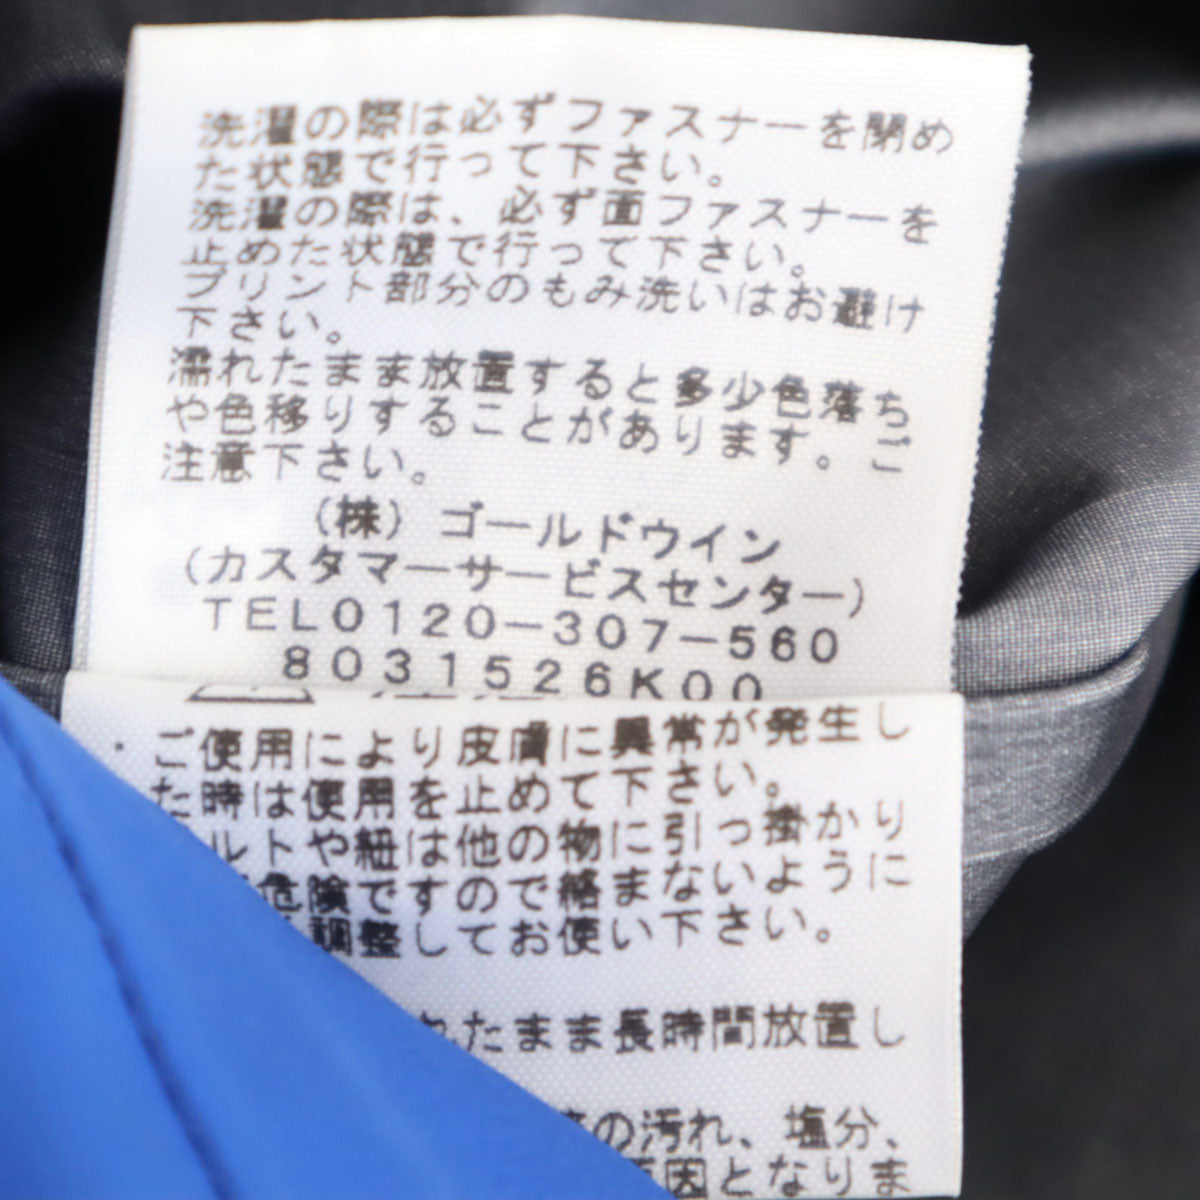 洗濯の際は必ずファスナーを閉め
た状態で行って下さい。
洗濯の際は、必ず面ファスナーを
止めた状態で行って下さい。
プリント部分のもみ洗いはお避け
下さい。
濡れたまま放置すると多少色落ち
や色移りすることがあります。ご
注意下さい。
(株) ゴールドウイン
(カスタマーサービスセンター)
TEL0120-307-560
8031526K00
・ご使用により皮膚に異常が発生し
た時は使用を止めて下さい。
ルトや紐は他の物に引っ掛かり
危険ですので絡まないように
調整してお使い下さい。
れたまま長時間放置し
の汚れ、塩分、
原因となりま